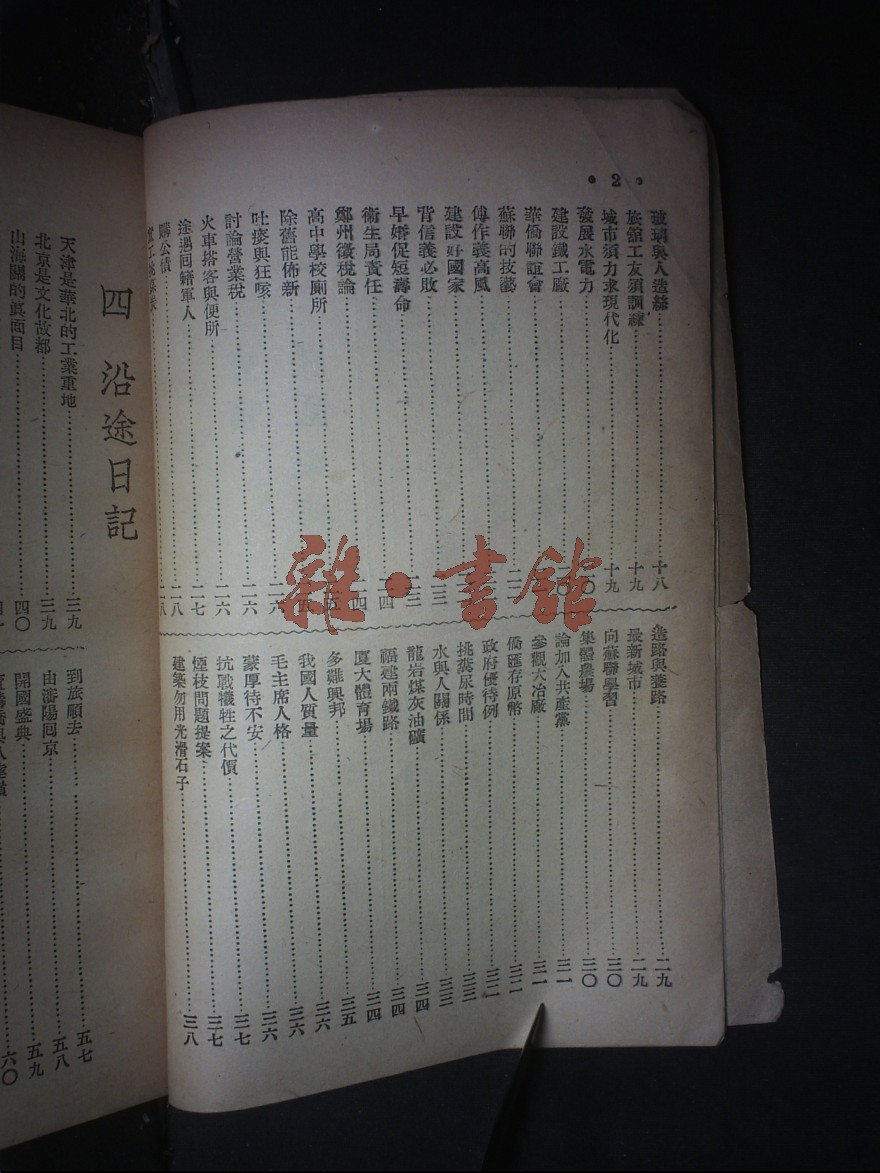 • 2 •
玻璃與人造絲……十八
旅舘工友須訓練……十九
城市須力求現代化……十九
發展水電力……
建設鐵工廠……
華僑聯誼會……
蘇聯的技藝……
傅作義高風……
建設好國家……
背信義必敗……
早婚促短壽命……
衛生局責任……二四
鄭州徵稅論……
高中學校厠所……
除舊能佈新……
吐痰與狂咳……二六
討論營業稅……二六
火車搭客與便所……二六
途遇回籍軍人……二七
購公債……二八
造路與養路……二九
最新城市……二九
向蘇聯學習……三〇
集體農場……三〇
論加入共產黨……三一
參觀大冶廠……三一
僑匯存原幣……三二
政府優待例……三二
挑糞尿時間……三三
水與人關係……三三
龍岩煤灰油礦……三四
福建兩鐵路……三四
廈大體育場……三四
多難興邦……三五
我國人質量……三六
毛主席人格……三六
蒙厚待不安……三六
抗戰犧牲之代價……三七
煙枝問題提案……三七
建築勿用光滑石子……三八
四 沿途日記
天津是華北的工業重地……三九
北京是文化故都……三九
山海關的眞面目……四〇
到旅順去……五七
由瀋陽回京……五八
開國盛典……五九
六〇
雜·書館